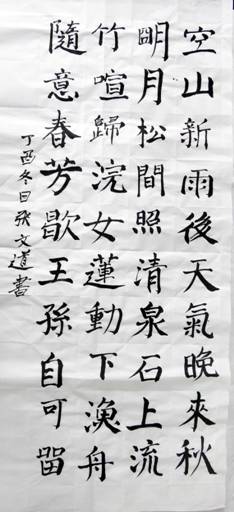 空山新雨後天氣晚來秋
明月松間照清泉石上流
竹喧歸浣女蓮動下漁舟
隨意春芳歇王孫自可留
丁酉冬日張文道書